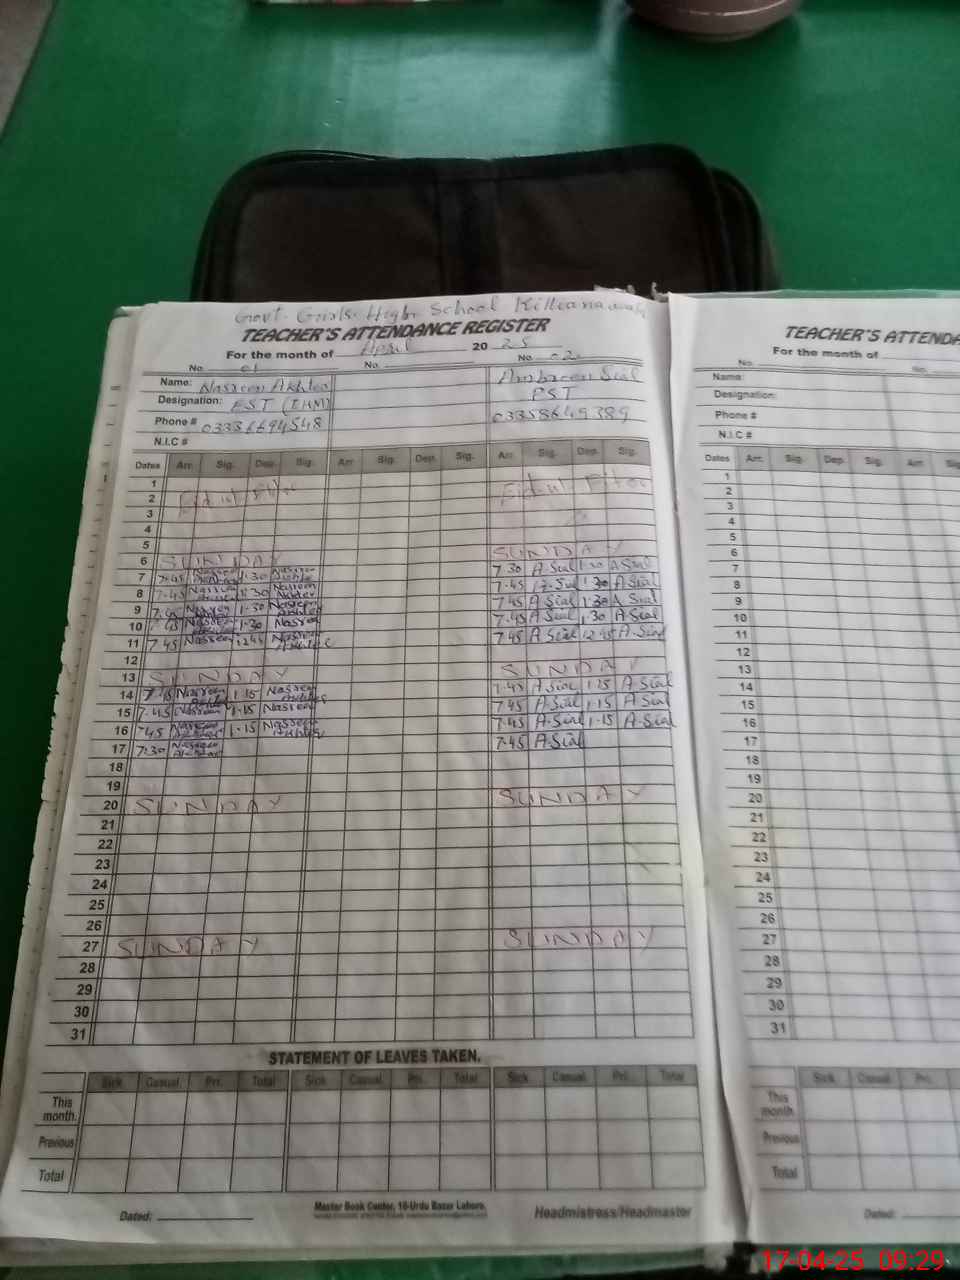 Govt. Girls High School
TEACHER'S ATTENDANCE REGISTER
For the month of April 20 25
No. 01 No. No. 02
Name: Nasreen Akhter Ambreen Sial
Designation: EST (I.HM) PST
Phone # 03358649389
N.I.C #
Dates Arr. Sig. Dep. Sig. Arr. Sig. Dep. Sig. Arr. Sig. Dep. Sig.
1
2 Eid ul Fiter Eid ul Fiter
3
4
5
6 SUNDAY SUNDAY
7 7.45 Nasreen Akhter 1.30 Nasreen Akhter 7.30 A Sial 1.30 A Sial
8 7.45 Nasreen 1.30 Nasreen 7.45 A. Sial 1.30 A Sial
9 7.45 Nasreen 1.30 Nasreen Akhter 7.45 A Sial 1.30 A Sial
10 7.45 Nasreen 1.30 Nasreen 7.45 A Sial 1.30 A Sial
11 7.45 Nasreen 12.45 Nasreen Akhter 7.45 A Sial 12.45 A-Sial
12
13 SUNDAY SUNDAY
14 7.45 Nasreen Akhter 1.15 Nasreen Akhter 7.45 A Sial 1.15 A-Sial
15 7.45 Nasreen 1.15 Nasreen 7.45 A-Sial 1.15 A-Sial
16 7.45 Nasreen Akhter 1.15 Nasreen Akhter 7.45 A-Sial 1.15 A-Sial
17 7:30 Nasreen Akhter 7.45 A-Sial
18
19
20 SUNDAY SUNDAY
21
22
23
24
25
26
27 SUNDAY SUNDAY
28
29
30
31
STATEMENT OF LEAVES TAKEN.
Sick Casual Pri. Total Sick Casual Pri. Total Sick Casual Pri. Total
This month.
Previous
Total
Master Book Center, 16-Urdu Bazar Lahore.
Dated: Headmistress/Headmaster
TEACHER'S ATTENDA
For the month of
No. No.
Name:
Designation:
Phone #
N.I.C #
Dates Arr. Sig. Dep. Sig. Arr. Sig
1
2
3
4
5
6
7
8
9
10
11
12
13
14
15
16
17
18
19
20
21
22
23
24
25
26
27
28
29
30
31
Sick Casual Pri. Total Sick
This month
Previous
Total
Dated:
17-04-25 09:29